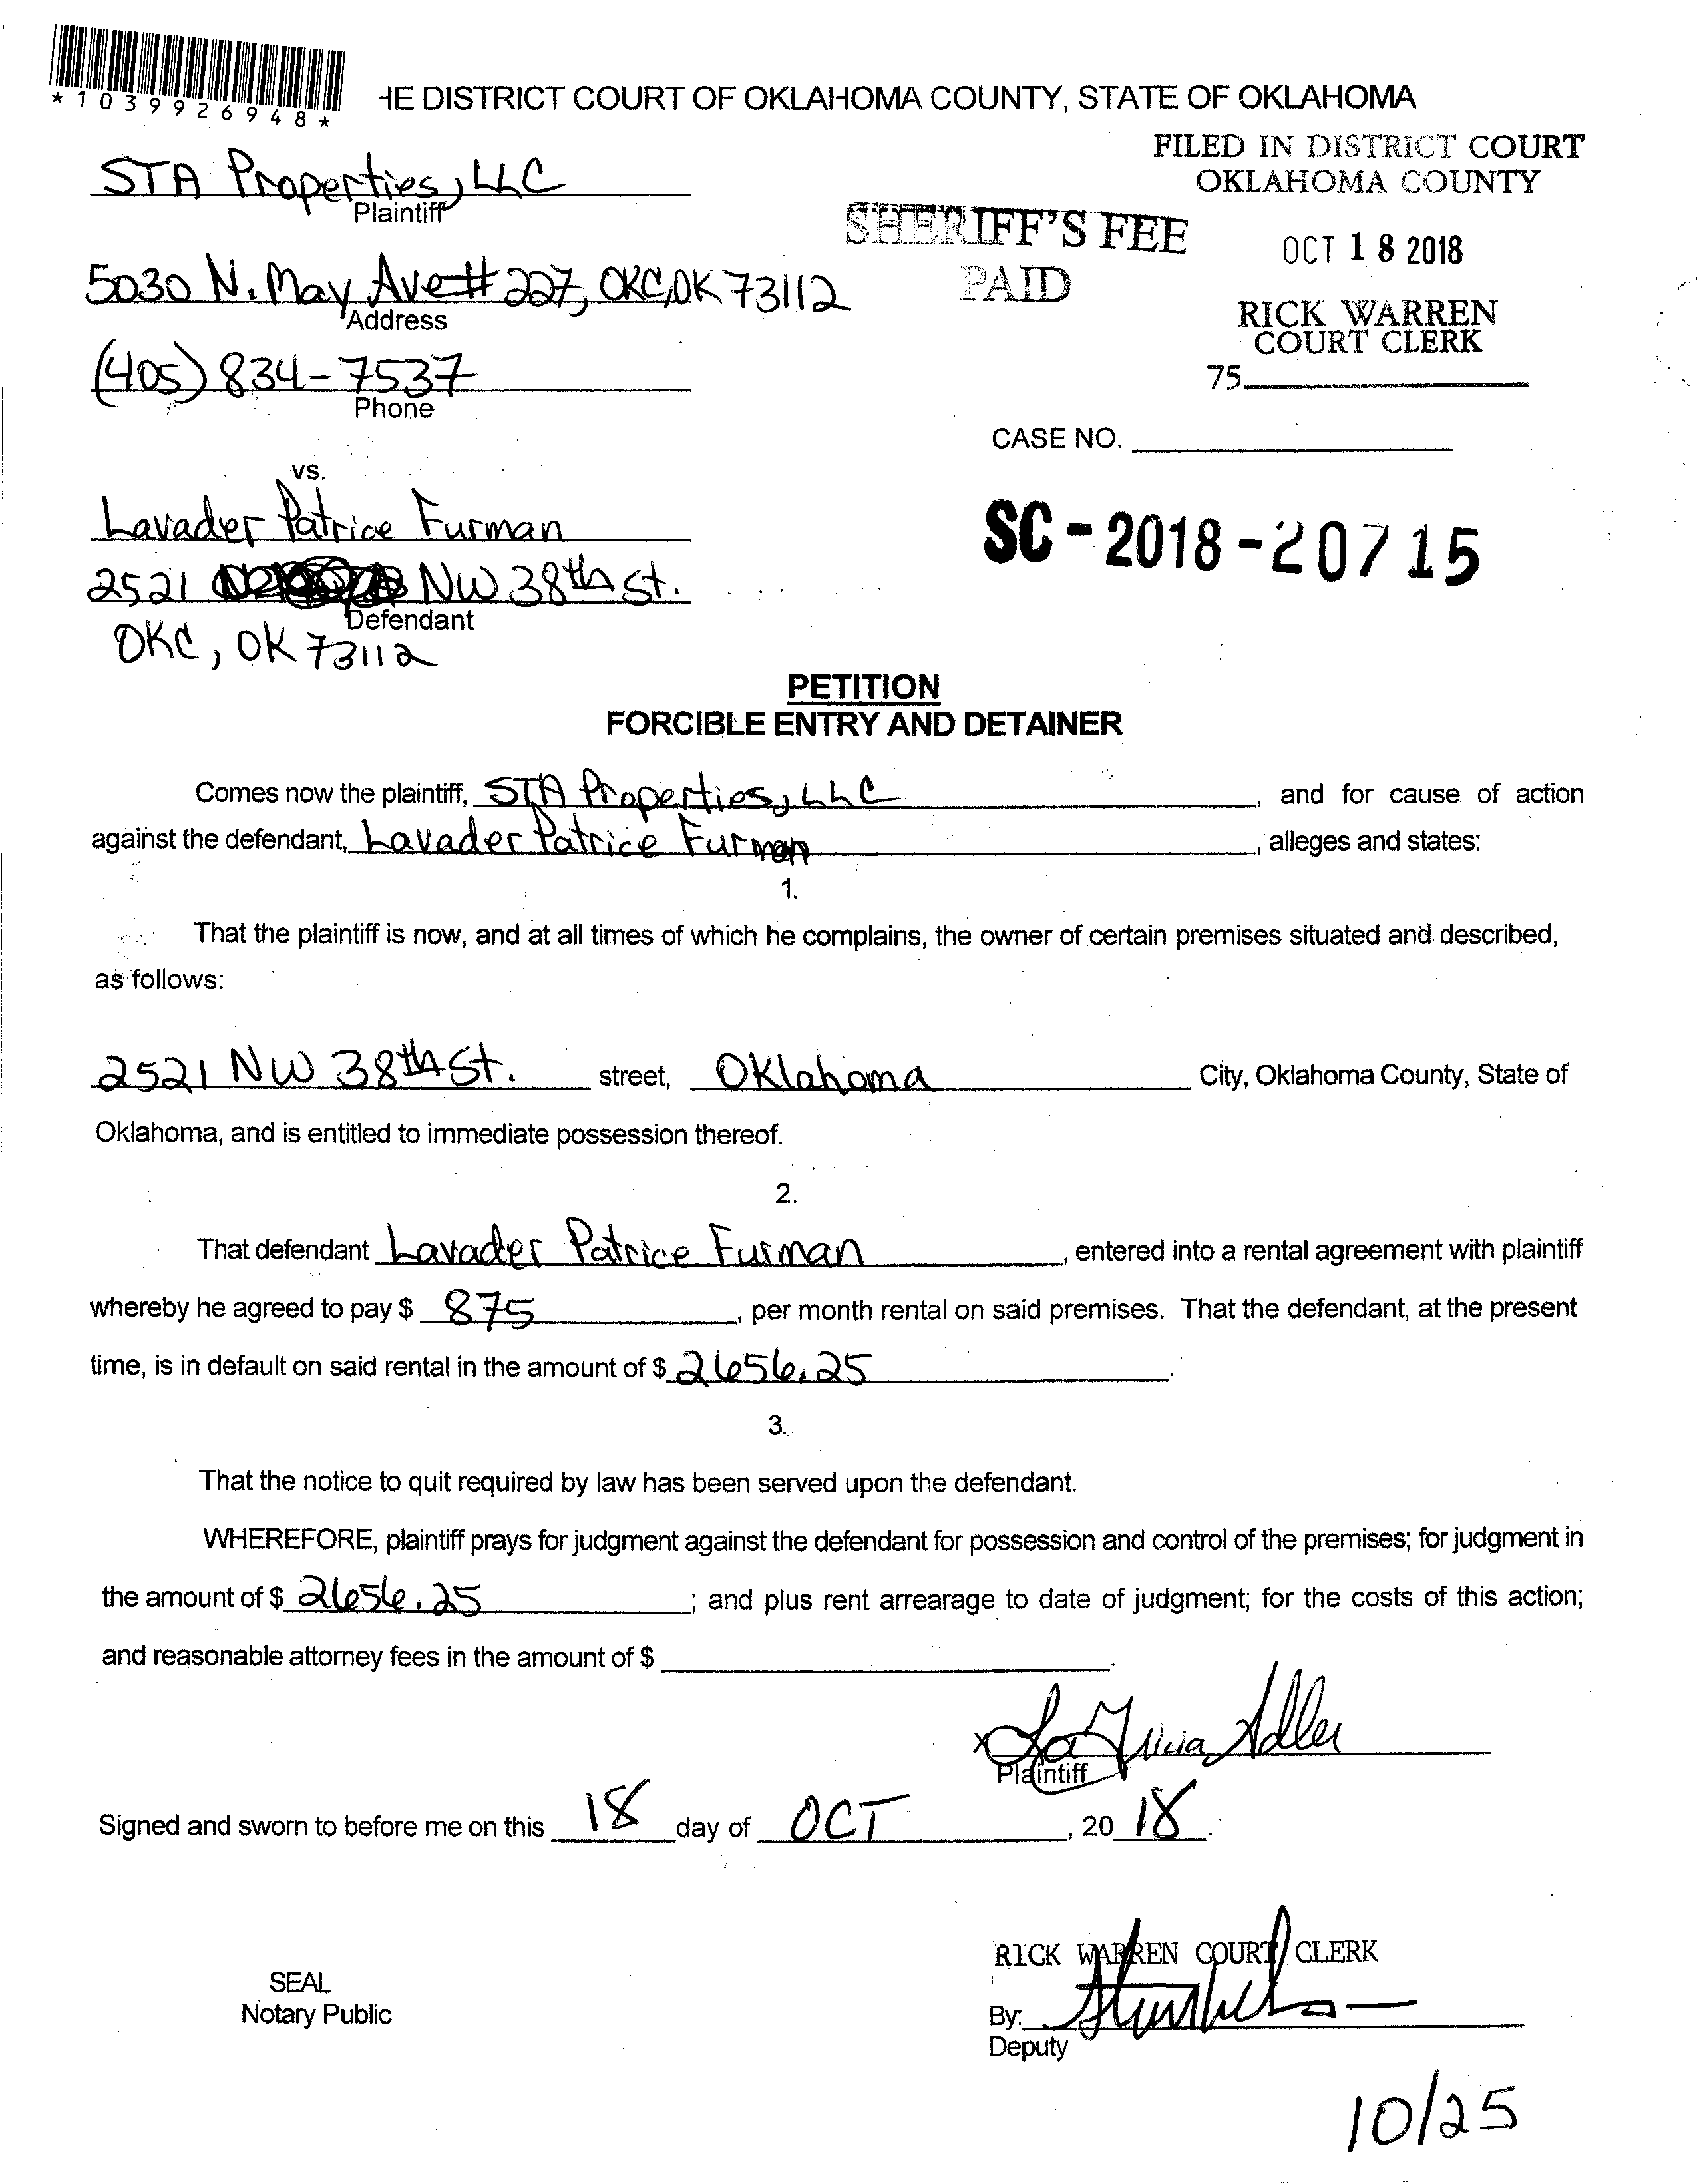 *1039926948*
HE DISTRICT COURT OF OKLAHOMA COUNTY, STATE OF OKLAHOMA
FILED IN DISTRICT COURT
OKLAHOMA COUNTY
STA Properties, LLC
Plaintiff
SHERIFF'S FEE
PAID
OCT 18 2018
5030 N. May Ave # 227, OKC, OK 73112
Address
RICK WARREN
COURT CLERK
(405) 834-7537
Phone
75
CASE NO.
vs.
Lavader Patrice Furman
SC-2018-20715
2521 NW 38th St.
Defendant
OKC, OK 73112
PETITION
FORCIBLE ENTRY AND DETAINER
Comes now the plaintiff, STA Properties, LLC, and for cause of action
against the defendant, Lavader Patrice Furman, alleges and states:
1.
That the plaintiff is now, and at all times of which he complains, the owner of certain premises situated and described,
as follows:
2521 NW 38th St. street, Oklahoma City, Oklahoma County, State of
Oklahoma, and is entitled to immediate possession thereof.
2.
That defendant Lavader Patrice Furman, entered into a rental agreement with plaintiff
whereby he agreed to pay $ 875, per month rental on said premises. That the defendant, at the present
time, is in default on said rental in the amount of $ 2656.25.
3.
That the notice to quit required by law has been served upon the defendant.
WHEREFORE, plaintiff prays for judgment against the defendant for possession and control of the premises; for judgment in
the amount of $ 2656.25; and plus rent arrearage to date of judgment; for the costs of this action;
and reasonable attorney fees in the amount of $ .
x LaTricia Adler
Plaintiff
Signed and sworn to before me on this 18 day of OCT, 2018.
RICK WARREN COURT CLERK
SEAL
Notary Public
By:
Deputy
10/25